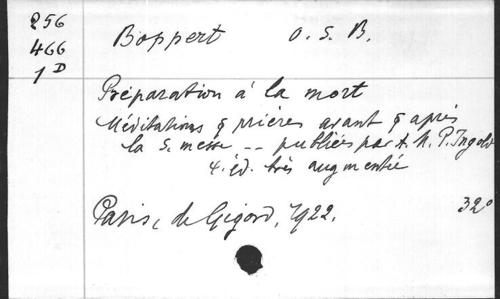 256
466
1 D
Boppert O. S. B.
Préparation à la mort
Méditations & prières avant & après
la S. messe -- publiées par A. M. P. Ingold
4. éd. très augmentée
Paris, de Gigord, 1922. 32°